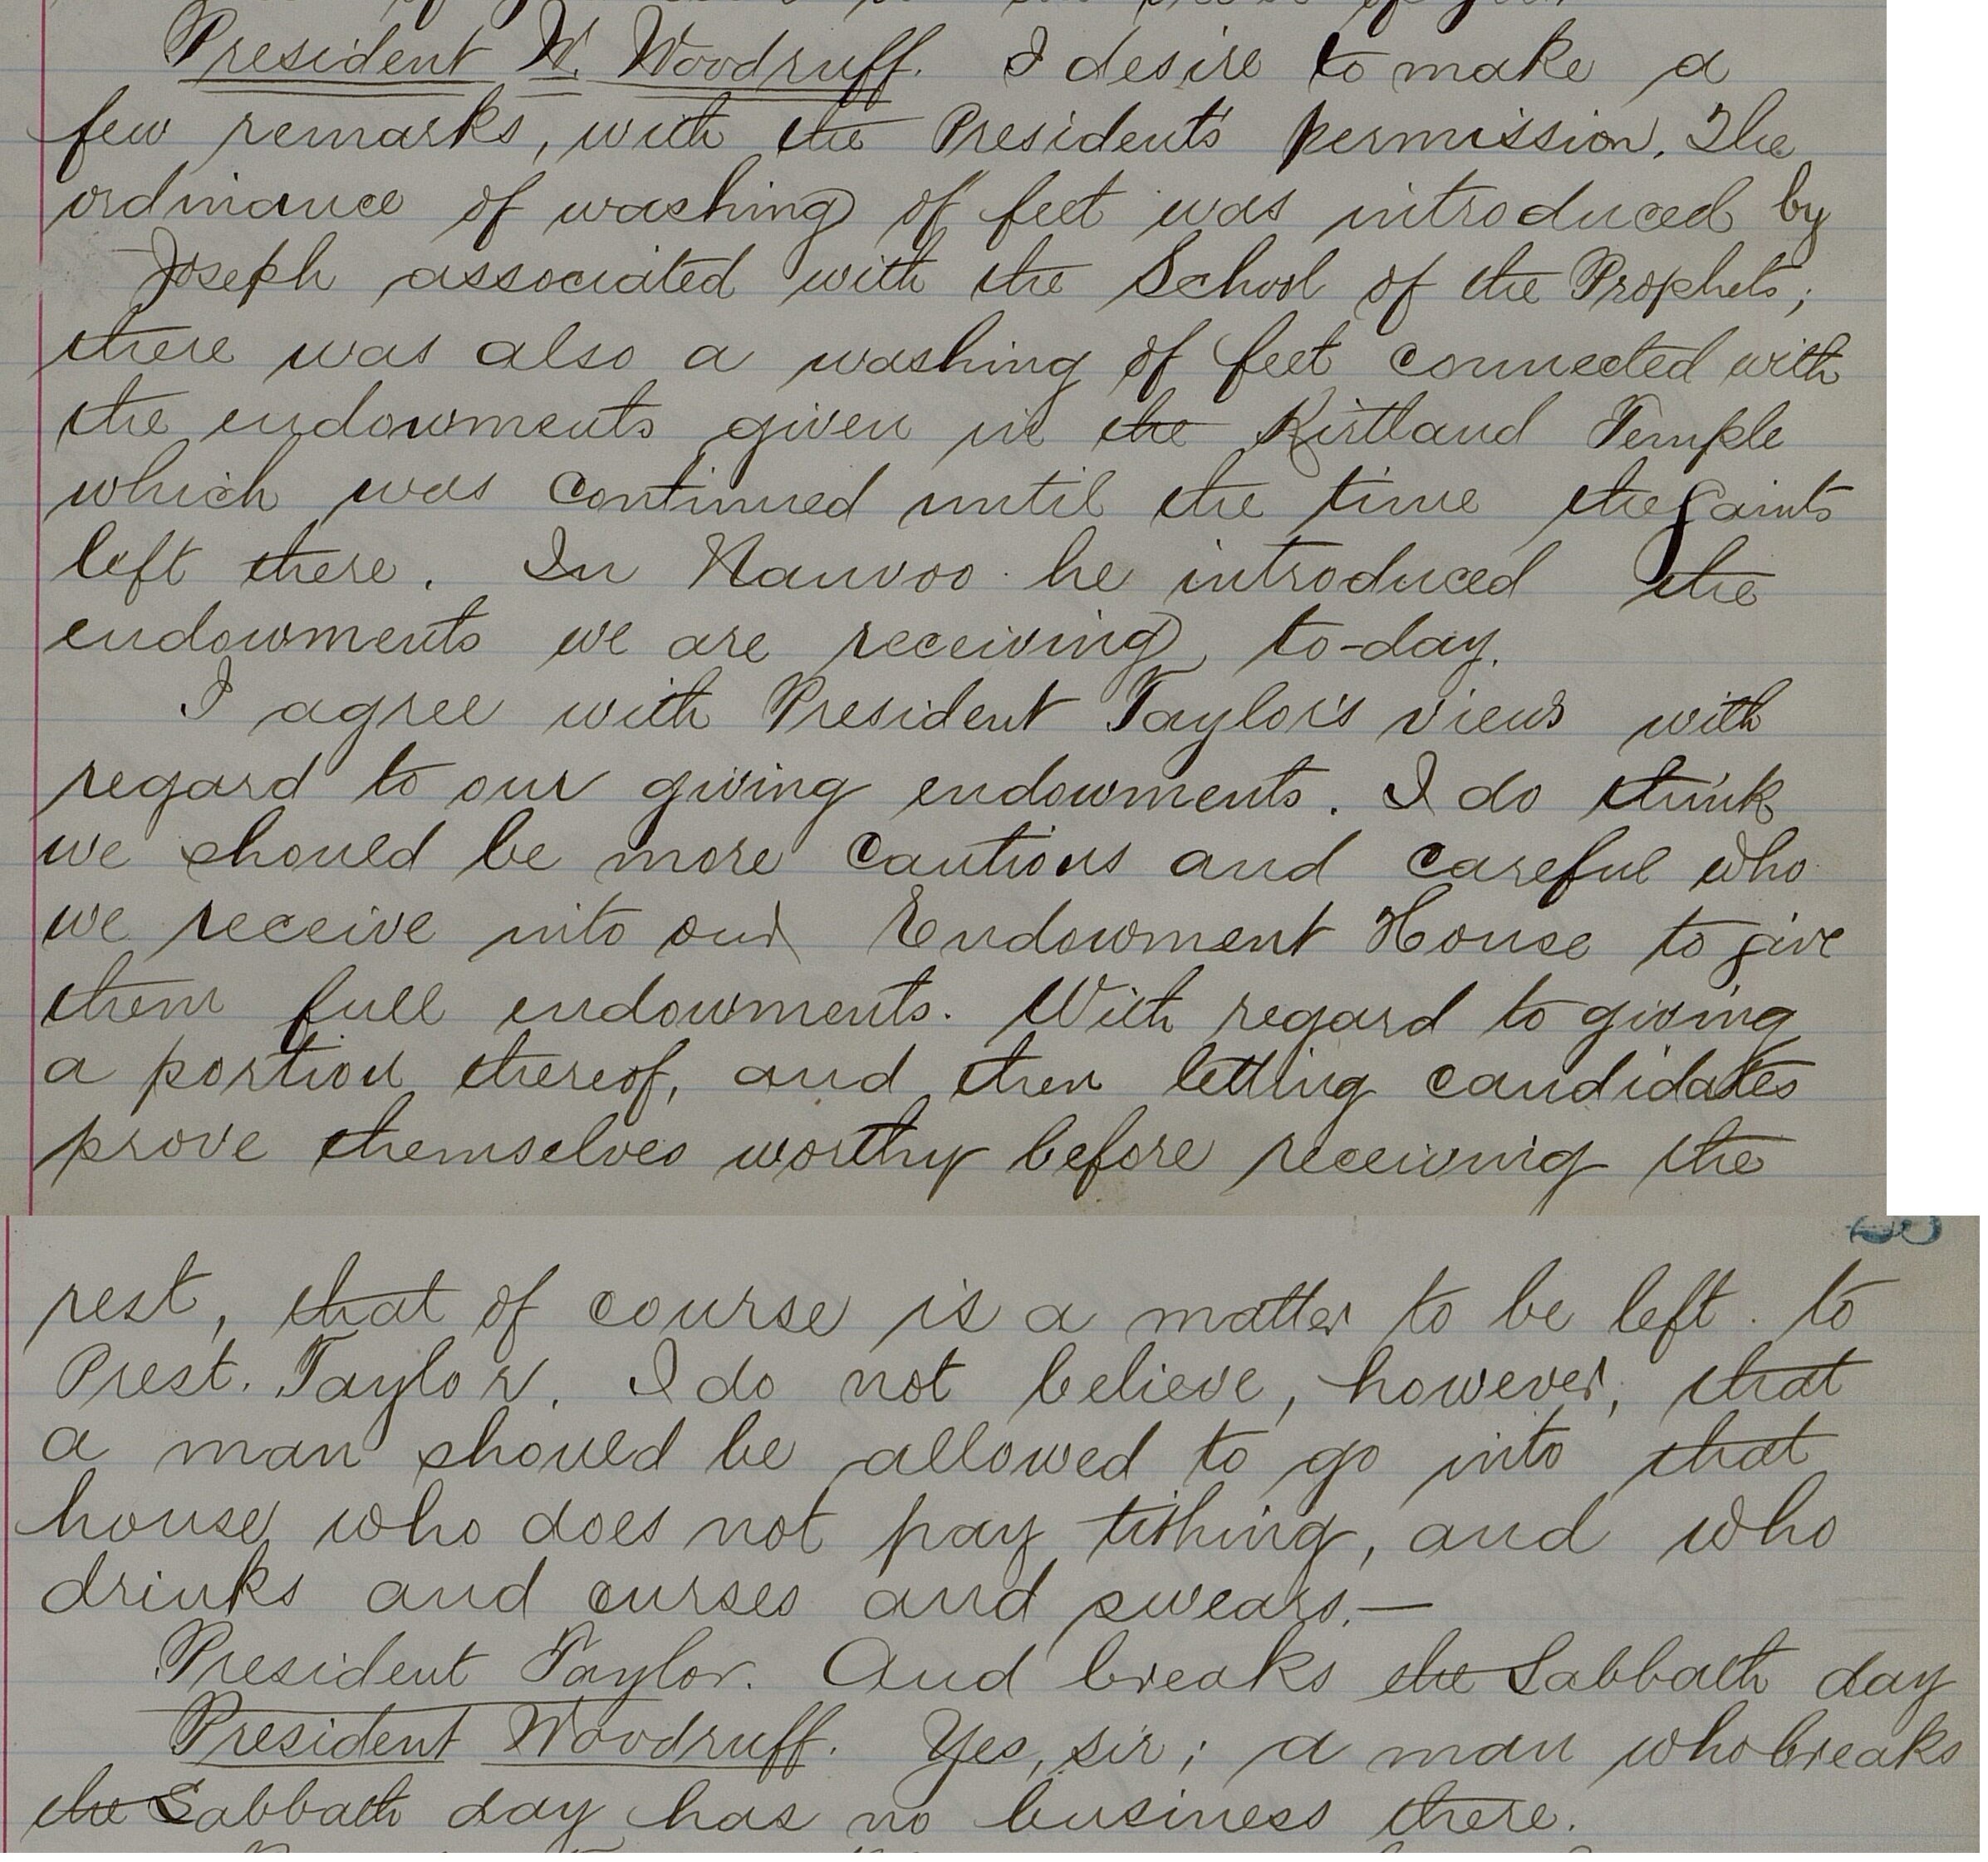 President W. Woodruff. I desire to make a
few remarks, with the President's permission. The
ordinance of washing of feet was introduced by
Joseph associated with the School of the Prophets;
there was also a washing of feet connected with
the endowments given in the Kirtland Temple
which was continued until the time the Saints
left there. In Nauvoo he introduced the
endowments we are receiving to-day.
I agree with President Taylor's views with
regard to our giving endowments. I do think
we should be more cautious and careful who
we receive into our Endowment House to give
them full endowments. With regard to giving
a portion thereof, and then letting candidates
prove themselves worthy before receiving the
rest, that of course is a matter to be left to
Prest. Taylor. I do not believe, however, that
a man should be allowed to go into that
house who does not pay tithing, and who
drinks and curses and swears.—
President Taylor. And breaks the Sabbath day
President Woodruff. Yes, sir; a man who breaks
the Sabbath day has no business there.